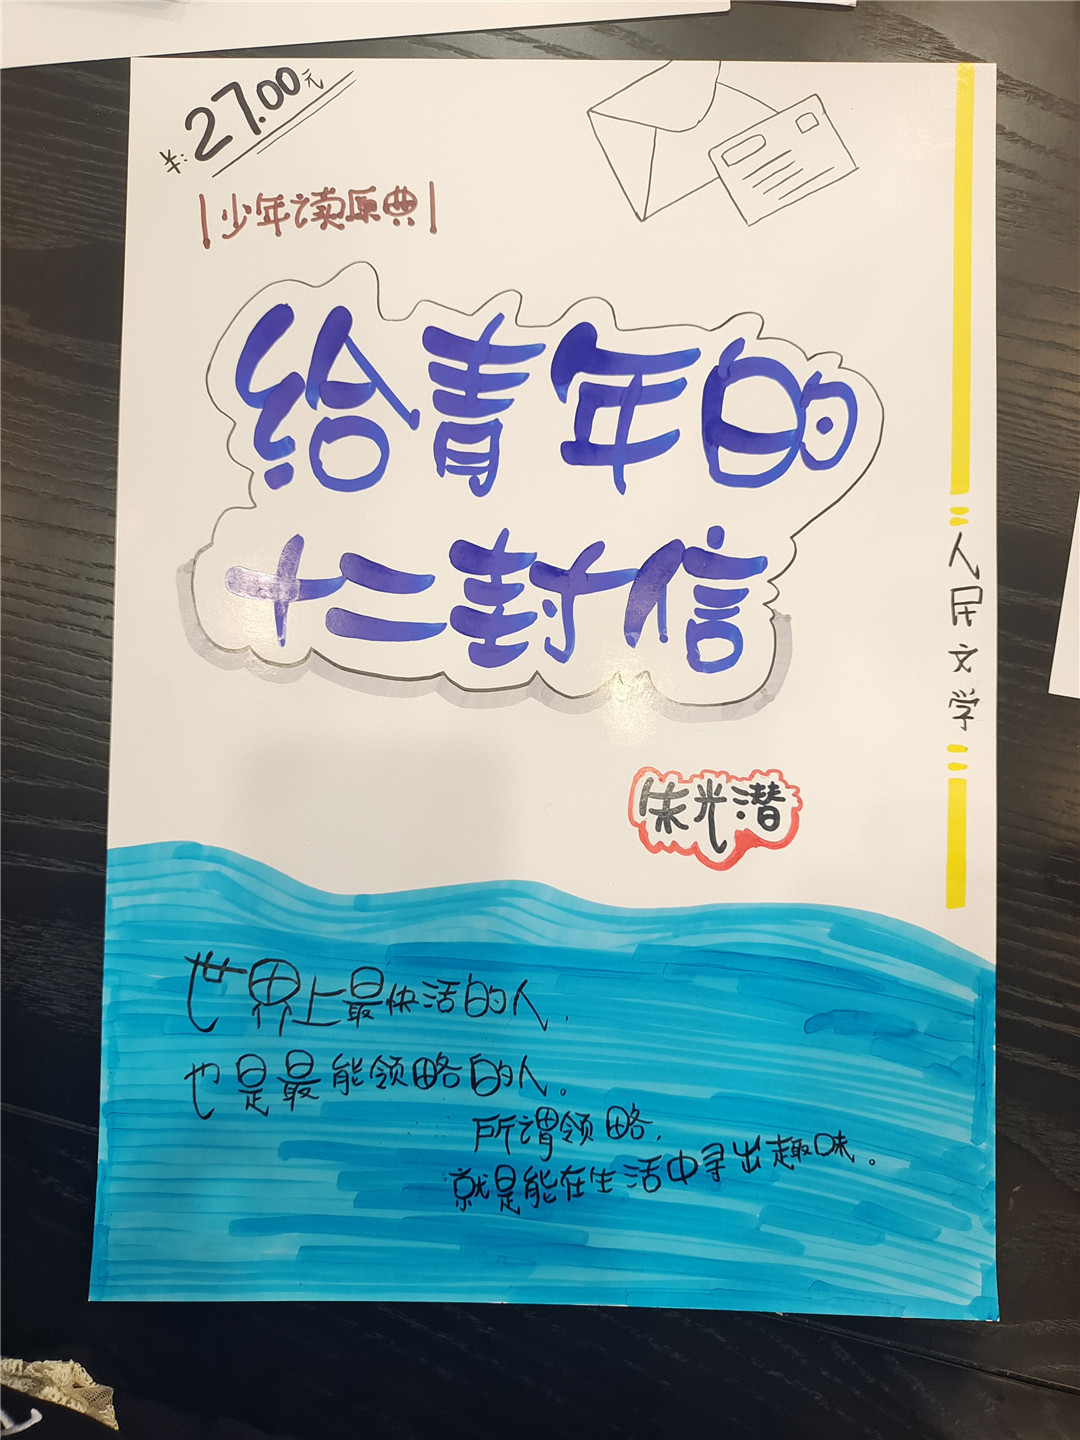 ¥:27.00元
|少年读原典|
给青年的
十二封信
人民文学
朱光潜
世界上最快活的人,
也是最能领略的人。
所谓领略,
就是能在生活中寻出趣味。